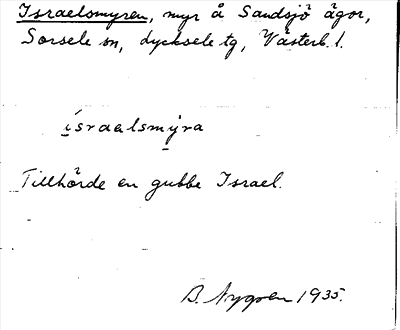 Israelsmyren, myr å Sandsjö ägor,
Sorsele sn, Lycksele tg, Västerb. l.
ísraelsmỳra
Tillhörde en gubbe Israel.
B. Nygren 1935.